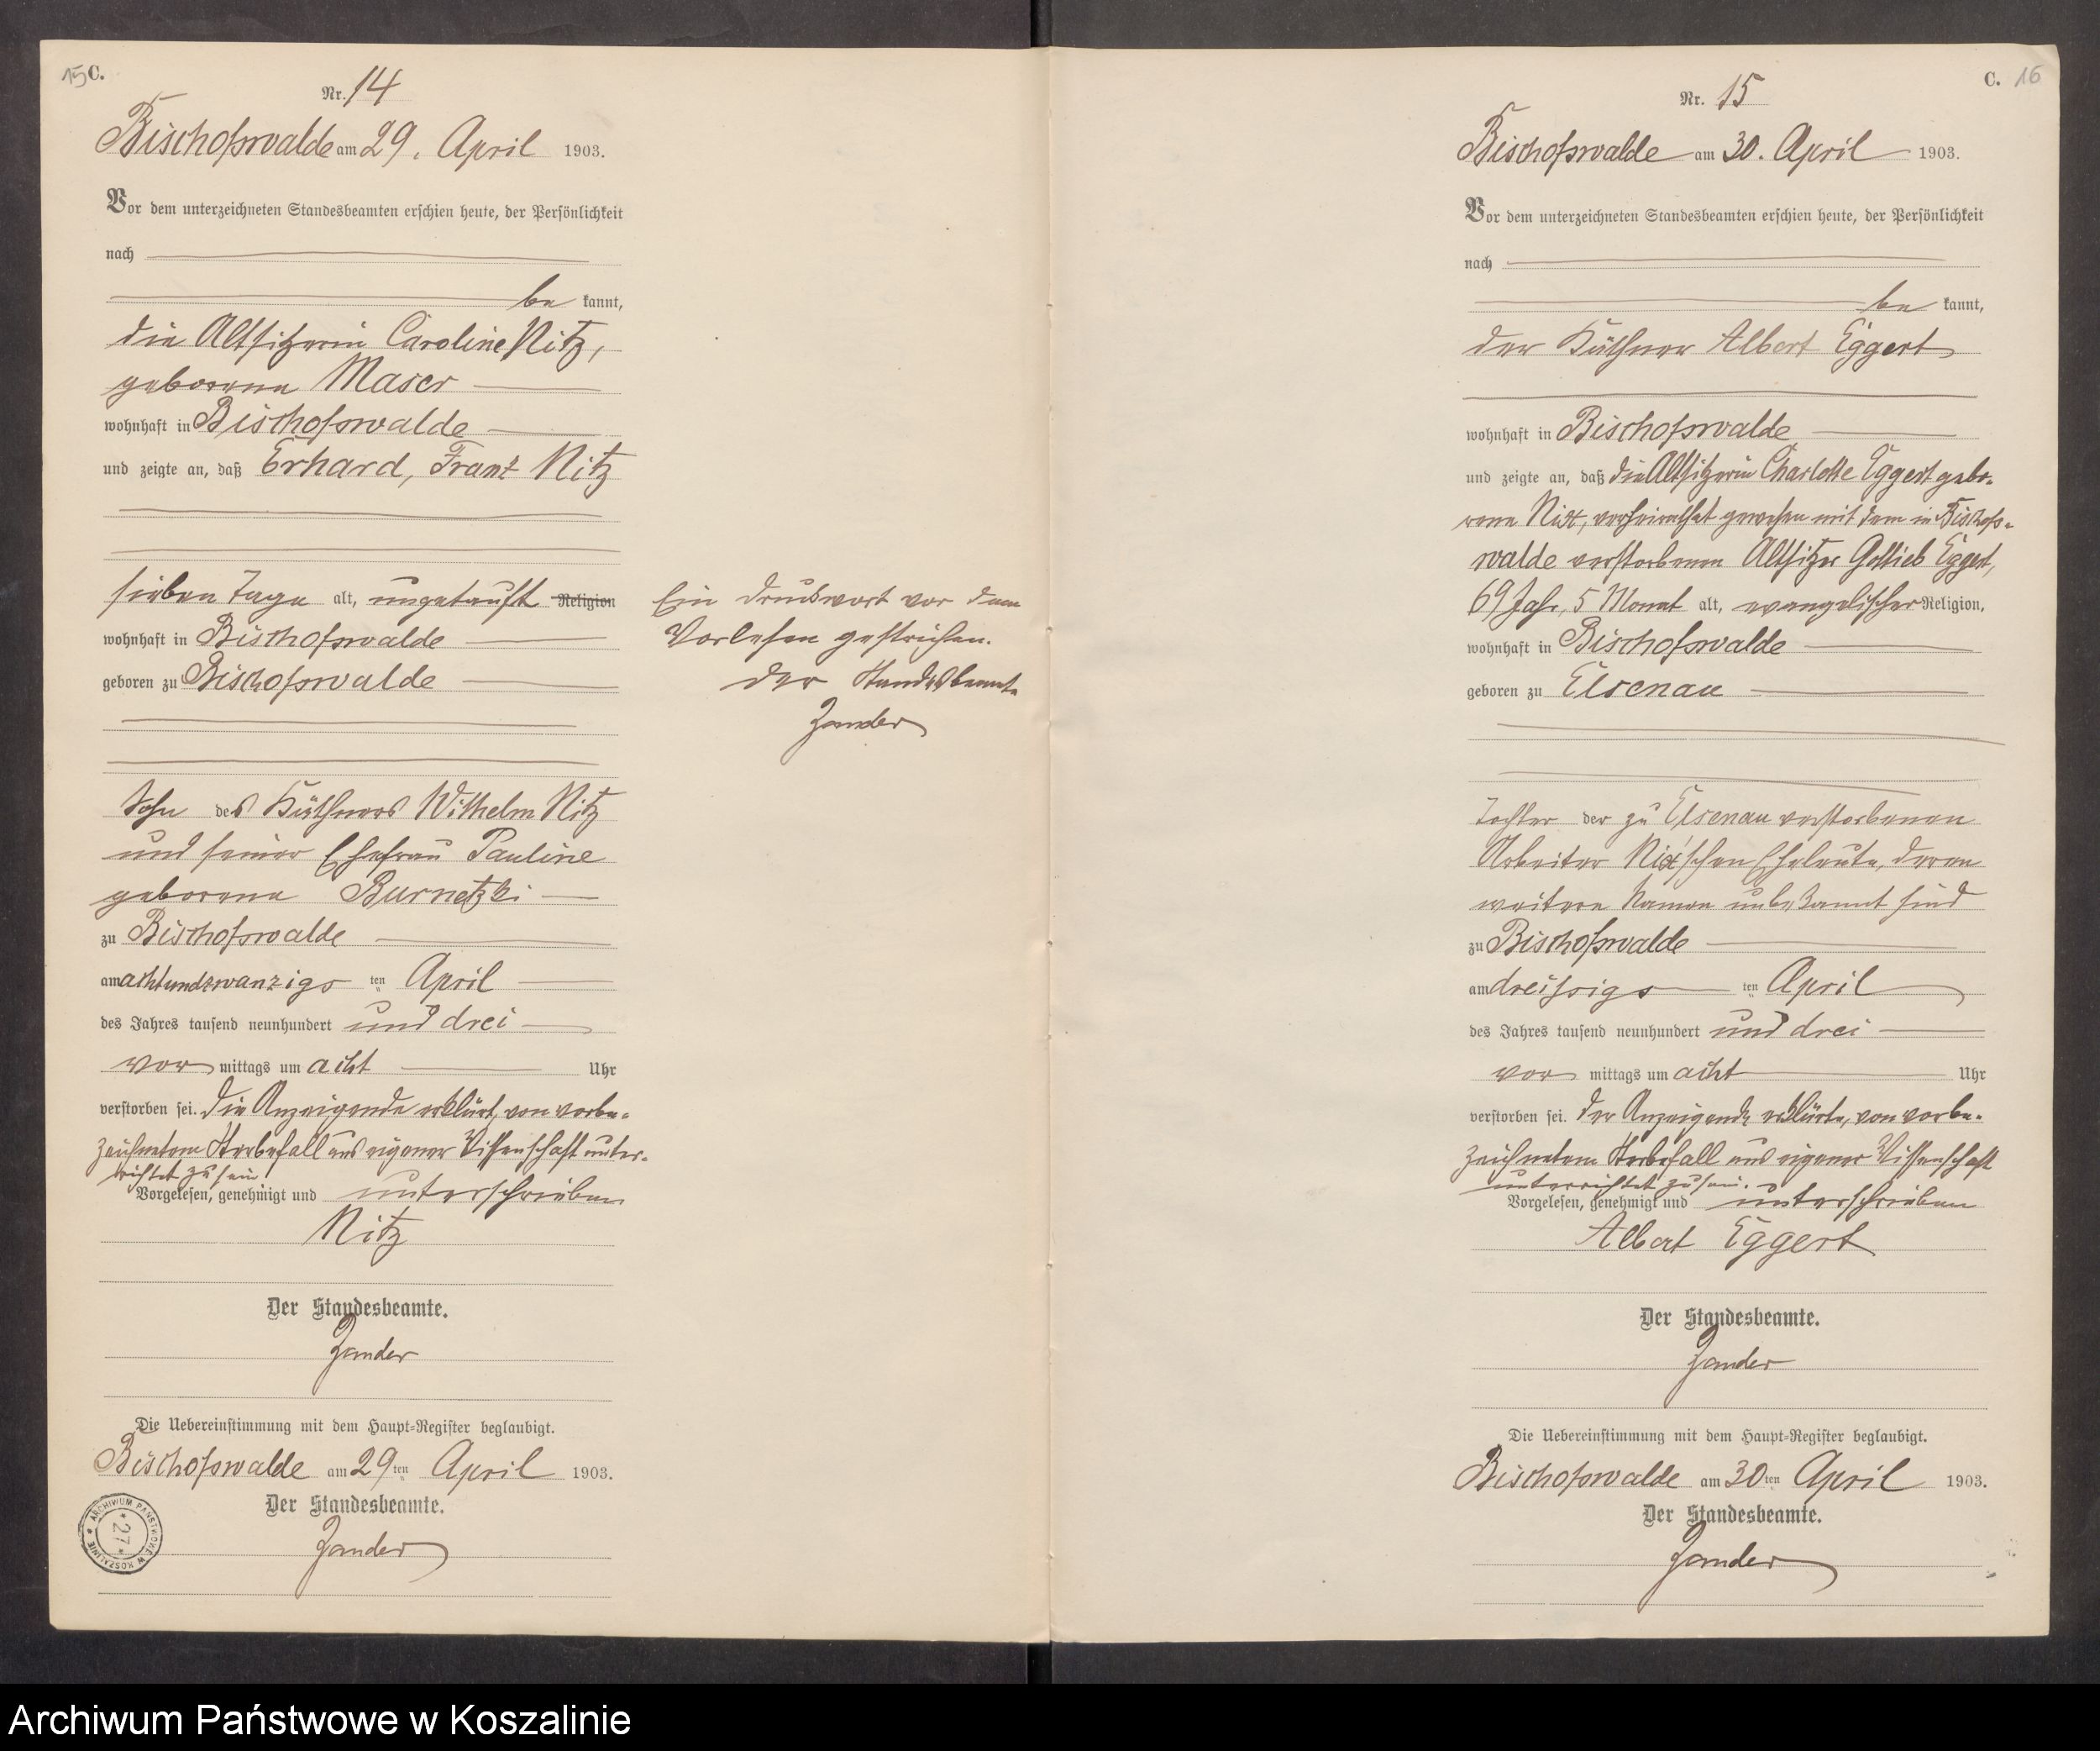 15 C.
Nr. 14
Bischofswalde am 29. April 1903.
Vor dem unterzeichneten Standesbeamten erschien heute, der Persönlichkeit
nach
be kannt,
die Altsitzerin Caroline Nitz,
geborene Maser
wohnhaft in Bischofswalde
und zeigte an, daß Erhard, Franz Nitz
sieben Tage alt, ungetauft Religion
wohnhaft in Bischofswalde
geboren zu Bischofswalde
Sohn des Käthners Wilhelm Nitz
und seiner Ehefrau Pauline
geborene Burnetzki
zu Bischofswalde
am achtundzwanzigs ten April
des Jahres tausend neunhundert und drei
vor mittags um acht Uhr
verstorben sei. Die Anzeigende erklärt, von vorbe-
zeichnetem Sterbefall aus eigener Wissenschaft unter-
richtet zu sein.
Vorgelesen, genehmigt und unterschrieben
Nitz
Der Standesbeamte.
Zander
Die Uebereinstimmung mit dem Haupt-Register beglaubigt.
Bischofswalde am 29ten April 1903.
Der Standesbeamte.
Zander
ARCHIWUM PAŃSTWOWE W KOSZALINIE * 27 *
Ein Druckwort vor dem
Vorlesen gestrichen.
Der Standesbeamte
Zander
C. 16
Nr. 15
Bischofswalde am 30. April 1903.
Vor dem unterzeichneten Standesbeamten erschien heute, der Persönlichkeit
nach
be kannt,
der Käthner Albert Eggert
wohnhaft in Bischofswalde
und zeigte an, daß die Altsitzerin Charlotte Eggert gebo-
rene Nix, verheirathet gewesen mit dem in Bischofs-
walde verstorbenen Altsitzer Gottlieb Eggert,
69 Jahr, 5 Monat alt, evangelischer Religion,
wohnhaft in Bischofswalde
geboren zu Elsenau
Tochter der zu Elsenau verstorbenen
Arbeiter Nix'schen Eheleute, deren
weitere Namen unbekannt sind
zu Bischofswalde
am dreissigs ten April
des Jahres tausend neunhundert und drei
vor mittags um acht Uhr
verstorben sei. Der Anzeigende erklärte, von vorbe-
zeichnetem Sterbefall aus eigener Wissenschaft
unterrichtet zu sein.
Vorgelesen, genehmigt und unterschrieben
Albert Eggert
Der Standesbeamte.
Zander
Die Uebereinstimmung mit dem Haupt-Register beglaubigt.
Bischofswalde am 30ten April 1903.
Der Standesbeamte.
Zander
Archiwum Państwowe w Koszalinie